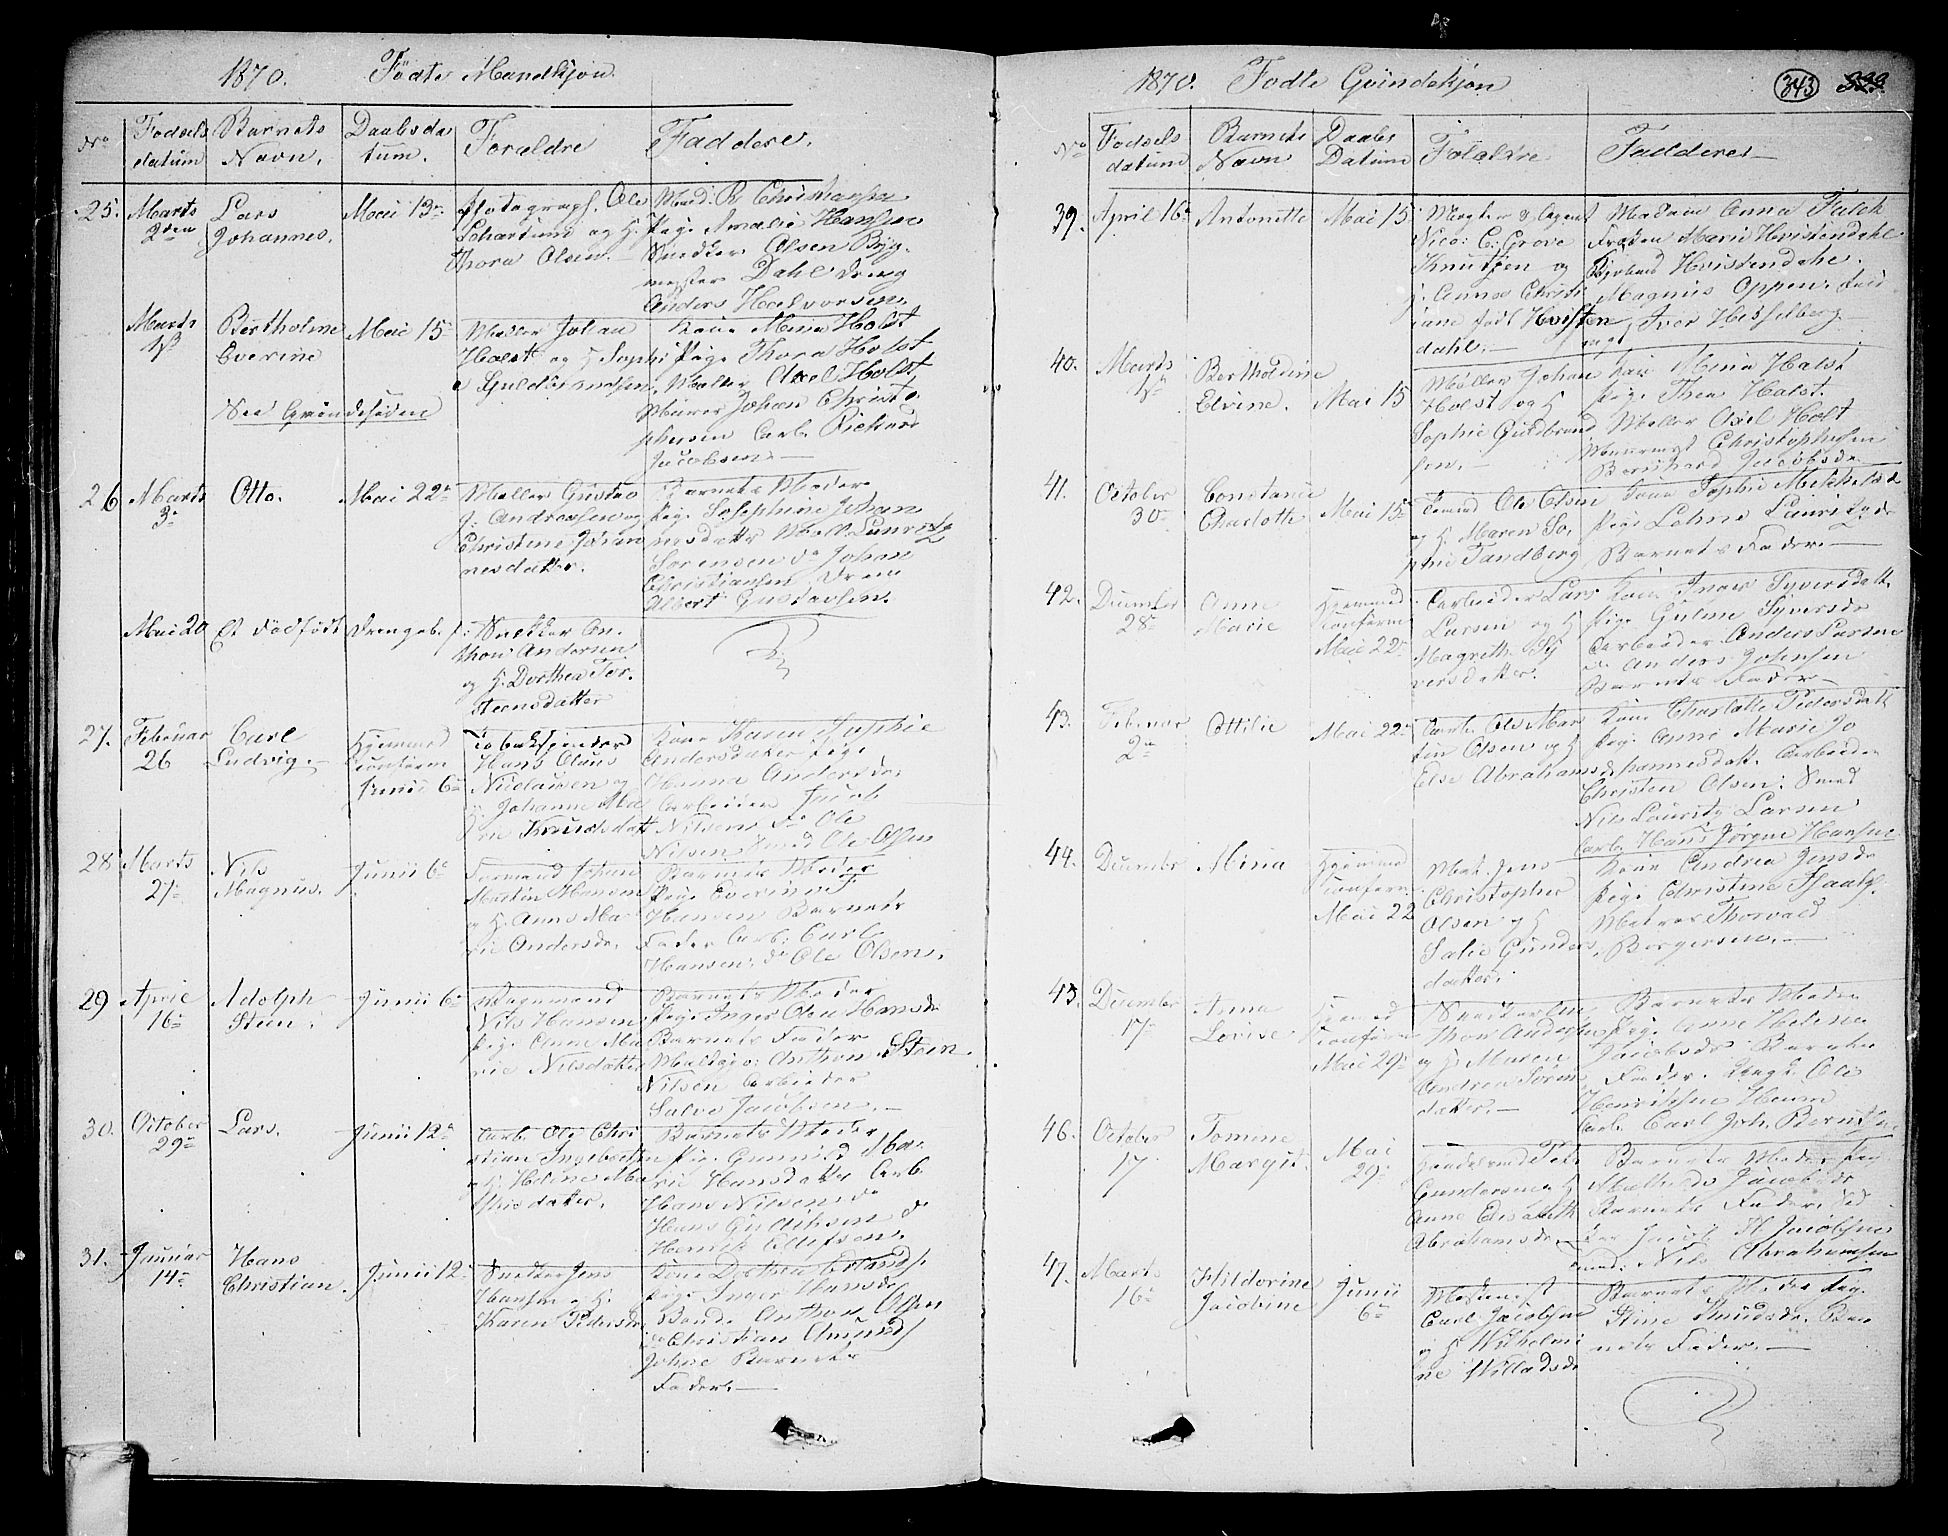 1870. Födte Mandkjön.
No
Födsels datum
Barnets Navn.
Daabsdatum.
Forældre
Faddere.
25.
Marts 2den
Lars Johannes.
Mai 13
Photograph. Ole
Schartum og H.
Thora Olsen.
Mad: R Christiansen
Pige Amalie Hansen
Snedker Olsen Byg.
mester Dahl dreng
Anders Halvorsen.
Marts
Bertholine Everine
Mai 15
Møller Johan
Holst og H Sophi
e Guldbrandsen.
Kone Mina Holst
Pige Thora Holst
Møller Axel Holst
Murer Johan Christo
phersen Carb. Rickard
Jacobsen.
See Qvindesiden
26
Marts 3
Otto.
Mai 22
Møller Gustav
Andreassen og
Christine Johan
nesdatter.
Barnets Moder
Pige Josephine Johan
nesdatter Møll. Lauritz
Sørensen do Johan
Christiansen Dreng
Albert Gustavsen.
Mai 20
Et dödfödt Drengeb.
Snedker An.
thon Andersen
og H. Dorthea Tor.
steensdatter
27.
Februar 26
Carl Ludvig.
Hjemmed
Confirm
Junii 6
Tobakspinder
Hans Olaus
Nielausen og
H. Johanne Ma
rie Knudsdatt
Kone Karen Sophie
Andersdatter Pige
Hanne Andersdr.
Arbeider Jacob
Nilsen do Ole
Nilsen Smed Ole Olsen
28
Marts 27
Nils Magnus.
Junii 6
Formand Johan
Martin Hansen
og H. Anne Ma
rie Andersdr.
Barnets Moder
Pige Everine
Hansen Barnets
Fader Carb: Carl
Hansen, do Ole Olsen.
29
April 16
Adolph Steen.
Junii 6
Vognmand
Nils Hansen
Pige Anne Ma
rie Nilsdatter
Barnets Moder
Pige Inger Olea Hansdr
Barnets Fader
Anthon Steen
Nilsen Arbeider
Salve Jacobsen.
30.
October 29
Lars.
Junii 12
Carb Ole Chri
stian Ingebretsen
og H. Heline Ma
thisdatter.
Barnets Moder
Pige Gunild Ma
rie Hansdatter Carb
Hans Nilsen do
Hans Gulichsen do
Henrik Ellefsen.
31.
Januar 14
Hans Christian.
Junii 12
Snedker Jens
Hansen og H.
Karen Pedersdr
Kone Dorthea
Pige Inger Hansdr
Bonde Anthon Olsen
do Christian Amunds
Johne Barnets
Fader.
1870. Fodte Qvindekjøn
343
No
Fødsels datum
Barnets Navn
Daabs Datum
Foreldre
Fadderes
39.
April 16
Antonette
Mai 15
Mægler & Agent
Nico: C: Grove
Knutzen og
H. Anna Christi
iane født Hvisten
dahl.
Madam Anna Falck
Frøken Marie Hvistendahl
Hvistendahl.
Magnus Oppen.
Iver Hesselberg
40.
Marts
Bertholdine Elvine.
Mai 15
Møller Johan
Holst og H
Sophie Guldbrand
sen.
Kone Mina Holst
Pige Thea Holst.
Møller Axel Holst
Christophersen
Bernhard Jacobsdr
41.
October 30
Constance Charlotte
Mai 15
Tømmd Ole Olsen
og H. Maren So.
phie Tandberg
Kone Sophie Mikkelsd
Pige Lehne Lauritzdr
Barnets Fader.
42.
December 28
Anne Marie
Hjemmed
Conferm
Mai 22
Arbeider Lars
Larsen og H
Magrethe Sy
versdatter.
Kone Inger Syversdatt.
Pige Guline Syversdr
Arbeider Anders Larsen
do Anders Johnsen
Barnets Fader
43.
Februar 2
Ottilie
Mai 22
Carb Ole Mar
tin Olsen og H
Else Abrahamsdr
Kone Charlotte Pedersdatt
Pige Anne Marie Jo
hannesdatt. Arbeider
Christen Olsen: Smed
Nils Lauritz Larsen
Carb. Hans Jørgen Hansen
44.
December
Mina
Hjemmed
Conferm
Mai 22
Mat. Jens
Christopher
Olsen og H
Salie Gunders
datter.
Kone Andrea Jensdr
Pige Christine
Matros Thorvald
Bergersen.
45.
December 17
Anna Lovise
Hjemmed
Conferm
Mai 29
Snedker An
thon Anders
og H Maren
Andrea Søren
datter.
Barnets Moder
Pige Anne Helene
Jacobsdr Barnets
Fader. Ungk. Ole
Henriksen Heum
Carb. Carl Joh. Berntsen
46.
October 17
Tomine Margit.
Mai 29
Gundersen og H
Anne Elisabeth
Abrahamsdr.
Barnets Moder Pig
Mathilde Jacobsdr
Barnets Fader,
Jacob H Jacobsen
Nils Abrahamsen
47.
Marts 16
Hildorine Jacobine
Junii 6
Maskinist
Carl Jacobsen
og H Wilhelmi
ne Willadsdr
Barnets Moder Pig.
Stine Knudsdr. Bar
nets Fader.